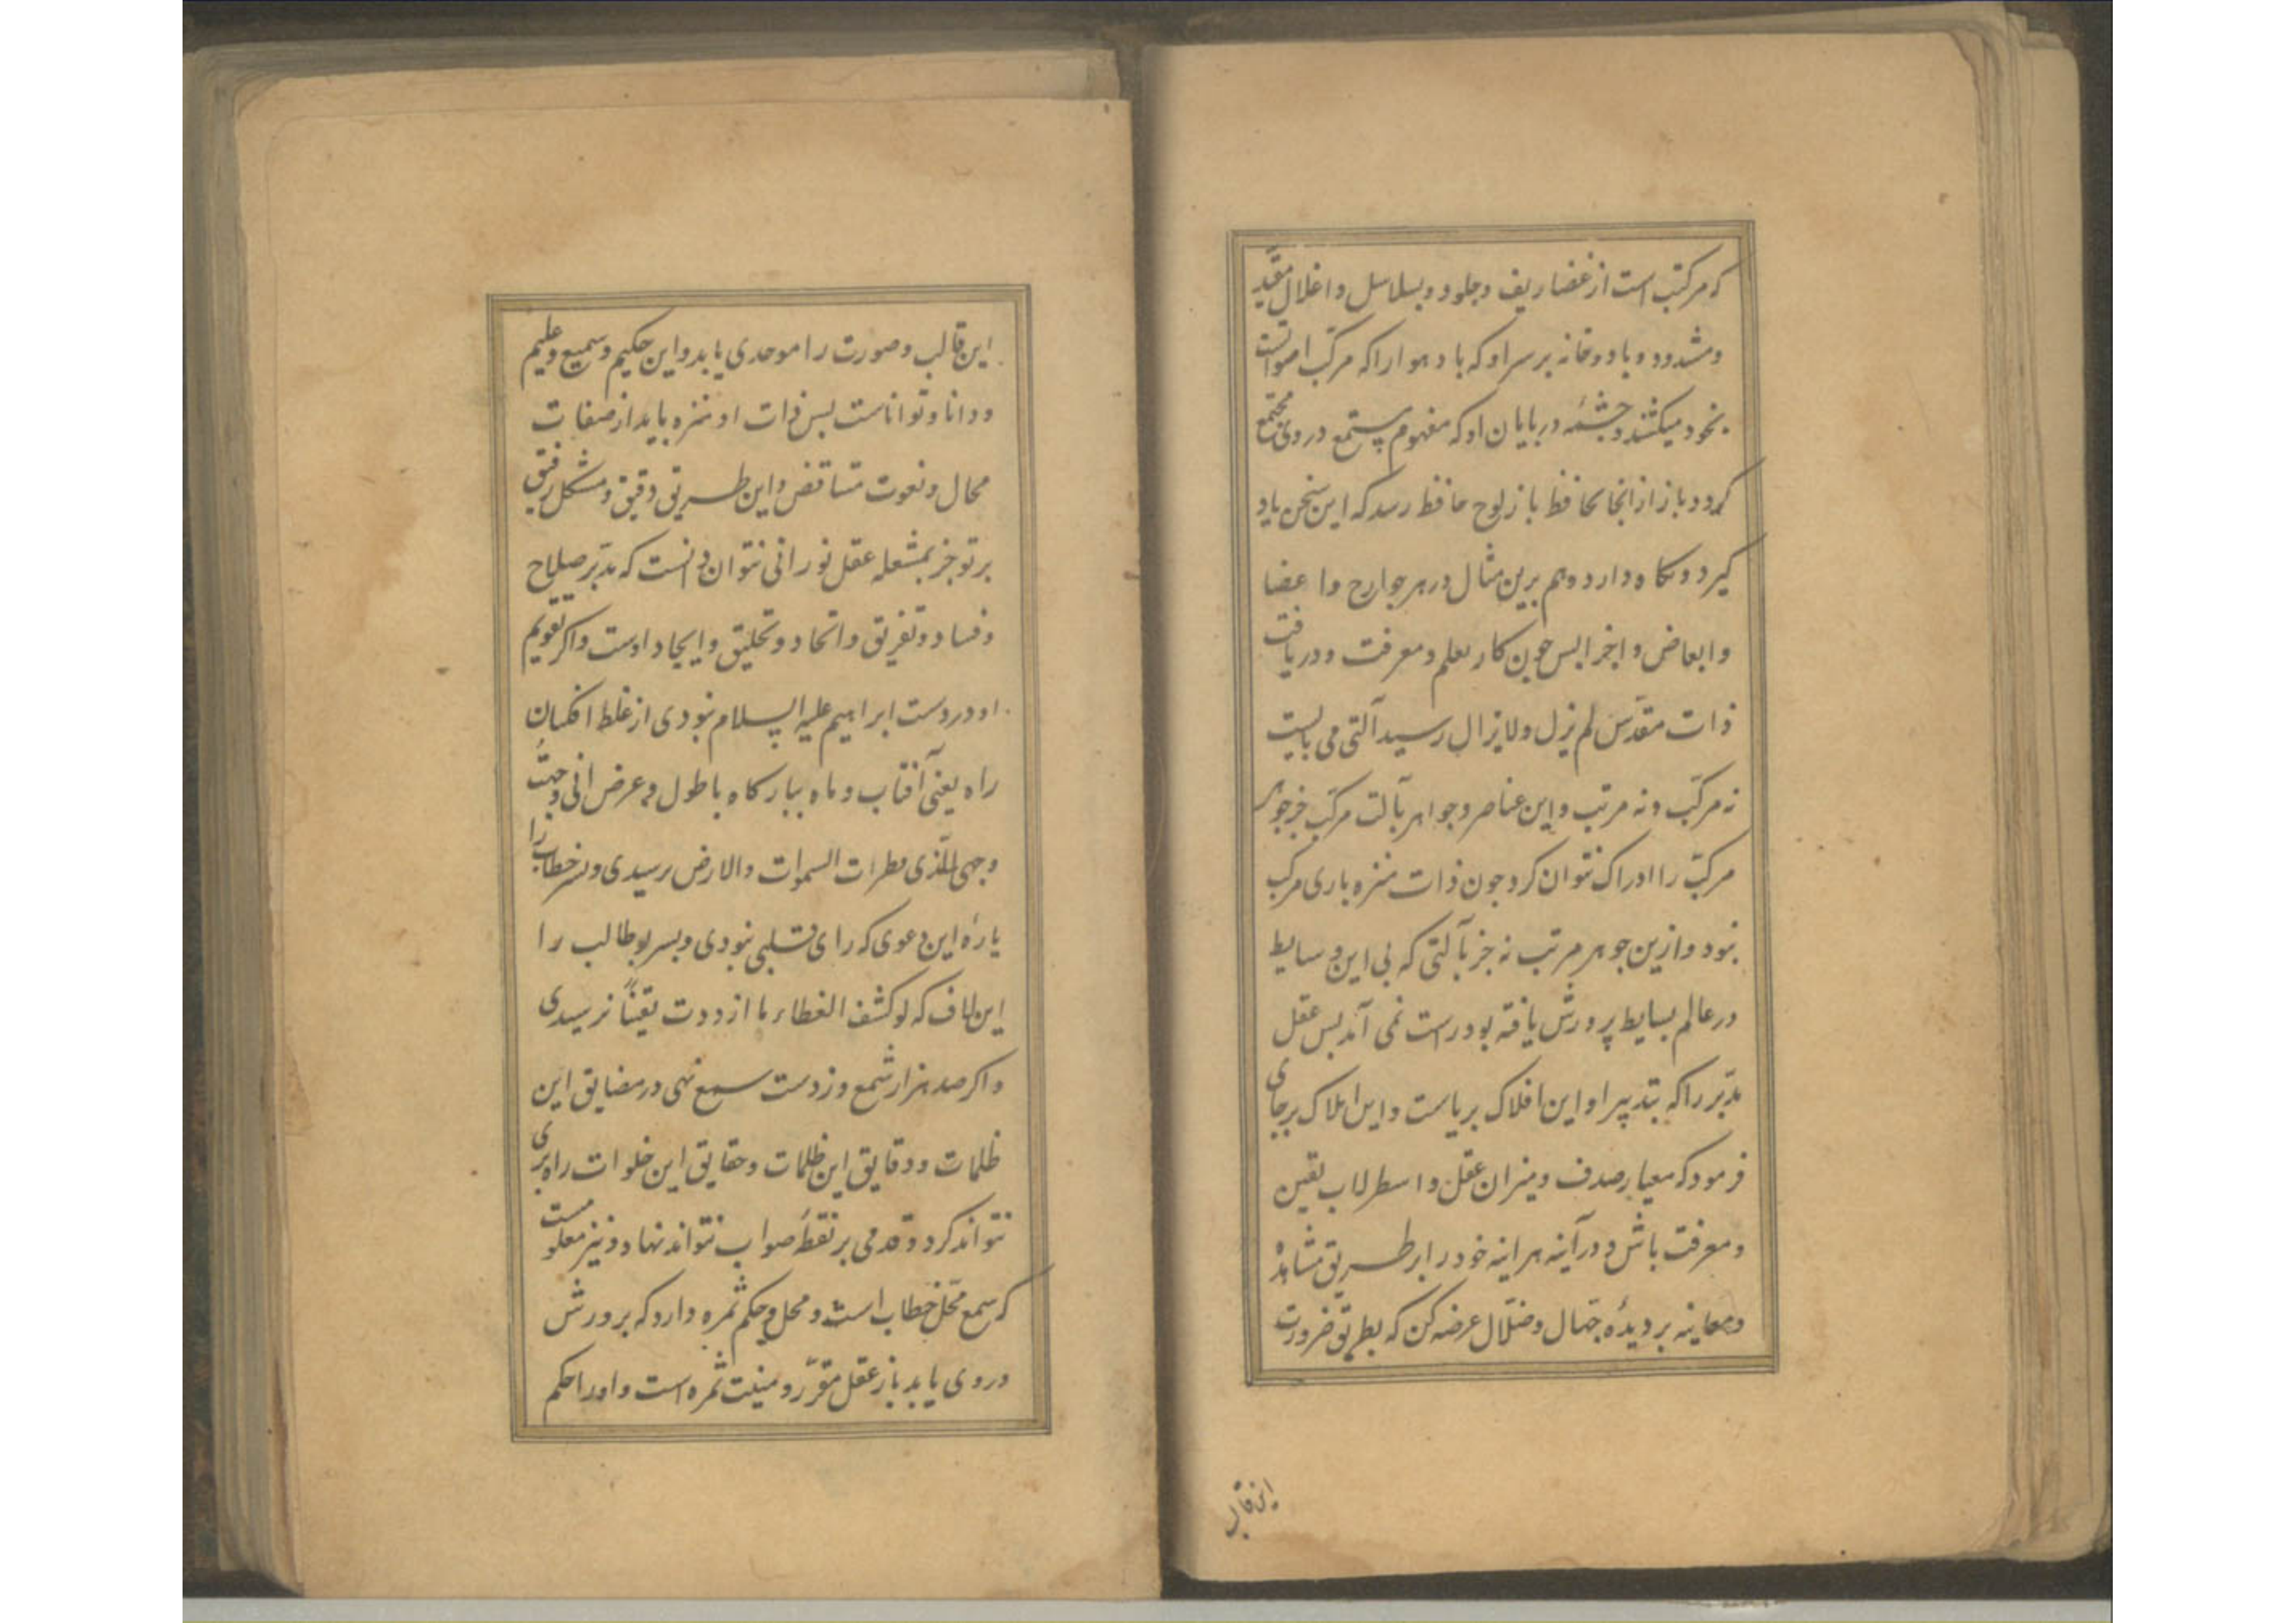 که مرکبّست از غضاریف وجلود وبسلاسل واغلال مقیّد
ومشدود وباد وخانه برسر او که باد هوارا که مرکب اصواتست
بخود میکشد وجشمٔه در بایان او که مفهوم مستمع در وی مجتمع
کردد وباز از انجا بحافظ باز لوح حافظ رسد که این سخن یاد
کیرد ونکاه دارد وهم برین مثال در هر جوارح واعضا
وابعاض واجزا بس جون کار بعلم ومعرفت ودریافت
ذات مقدّس لم یزل ولایزال رسید آلتی می بایست
نه مرکّب ونه مرتب واین عناصر وجواهر بآلت مرکّب جز جوهر
مرکّب را ادراک نتوان کرد جون ذات منزه باری مرکب
نبود وازین جوهر مرتب نه جز بآلتی که بی این وسایط
در عالم بسایط پرورش یافته بود راست نمی آمد بس عقل
مدبّر را که بتدبیر او این افلاک بر پاست واین املاک بر جای
فرمود که معیار صدف ومیزان عقل واسطرلاب یقین
ومعرفت باش ودر آینه هر اینه خود را از طریق مشاهدٔه
ومعاینه بر دیدهٔ جهّال وضلّال عرضه کن که بطریق ضرورت
این قالب
این قالب وصورت را موحدی یابد واین حکیم وسمیع وعلیم
ودانا وتواناست بس ذات او منزه باید از صفات
محال ونعوت متناقض واین طریق دقیق ومشکل رفیق
برتو جز بمشعله عقل نورانی نتوان دانست که مدبّر صلاح
وفساد وتفریق واتحاد وتخلیق وایجاد اوست واکر تقویم
او در دست ابراهیم علیه السلام نبودی از غلط افکنان
راه یعنی آفتاب وماه ببارکاه باطول وعرض انی وجّهتُ
وجهی للّذی فطر السموات والارض رسیدی وبسر خطاب را
یارهٔ این دعوی که رای قلبی نبودی وبسر بوطالب را
این لاف که لو کشف الغطاء ما ازددت یقیناً نرسیدی
واکر صد هزار شمع وز دست سمع نهی در مضایق این
ظلمات ودقایق این ظلمات وحقایق این خلوات راه بری
نتواند کرد وقدمی بر نقطهٔ صواب نتواند نهاد ونیز معلومست
که سمع محّل خطاب است ومحل وحکم ثمره دارد که برورش
در وی یابد باز عقل مقرّر ومنبت ثمره است واورا حکم